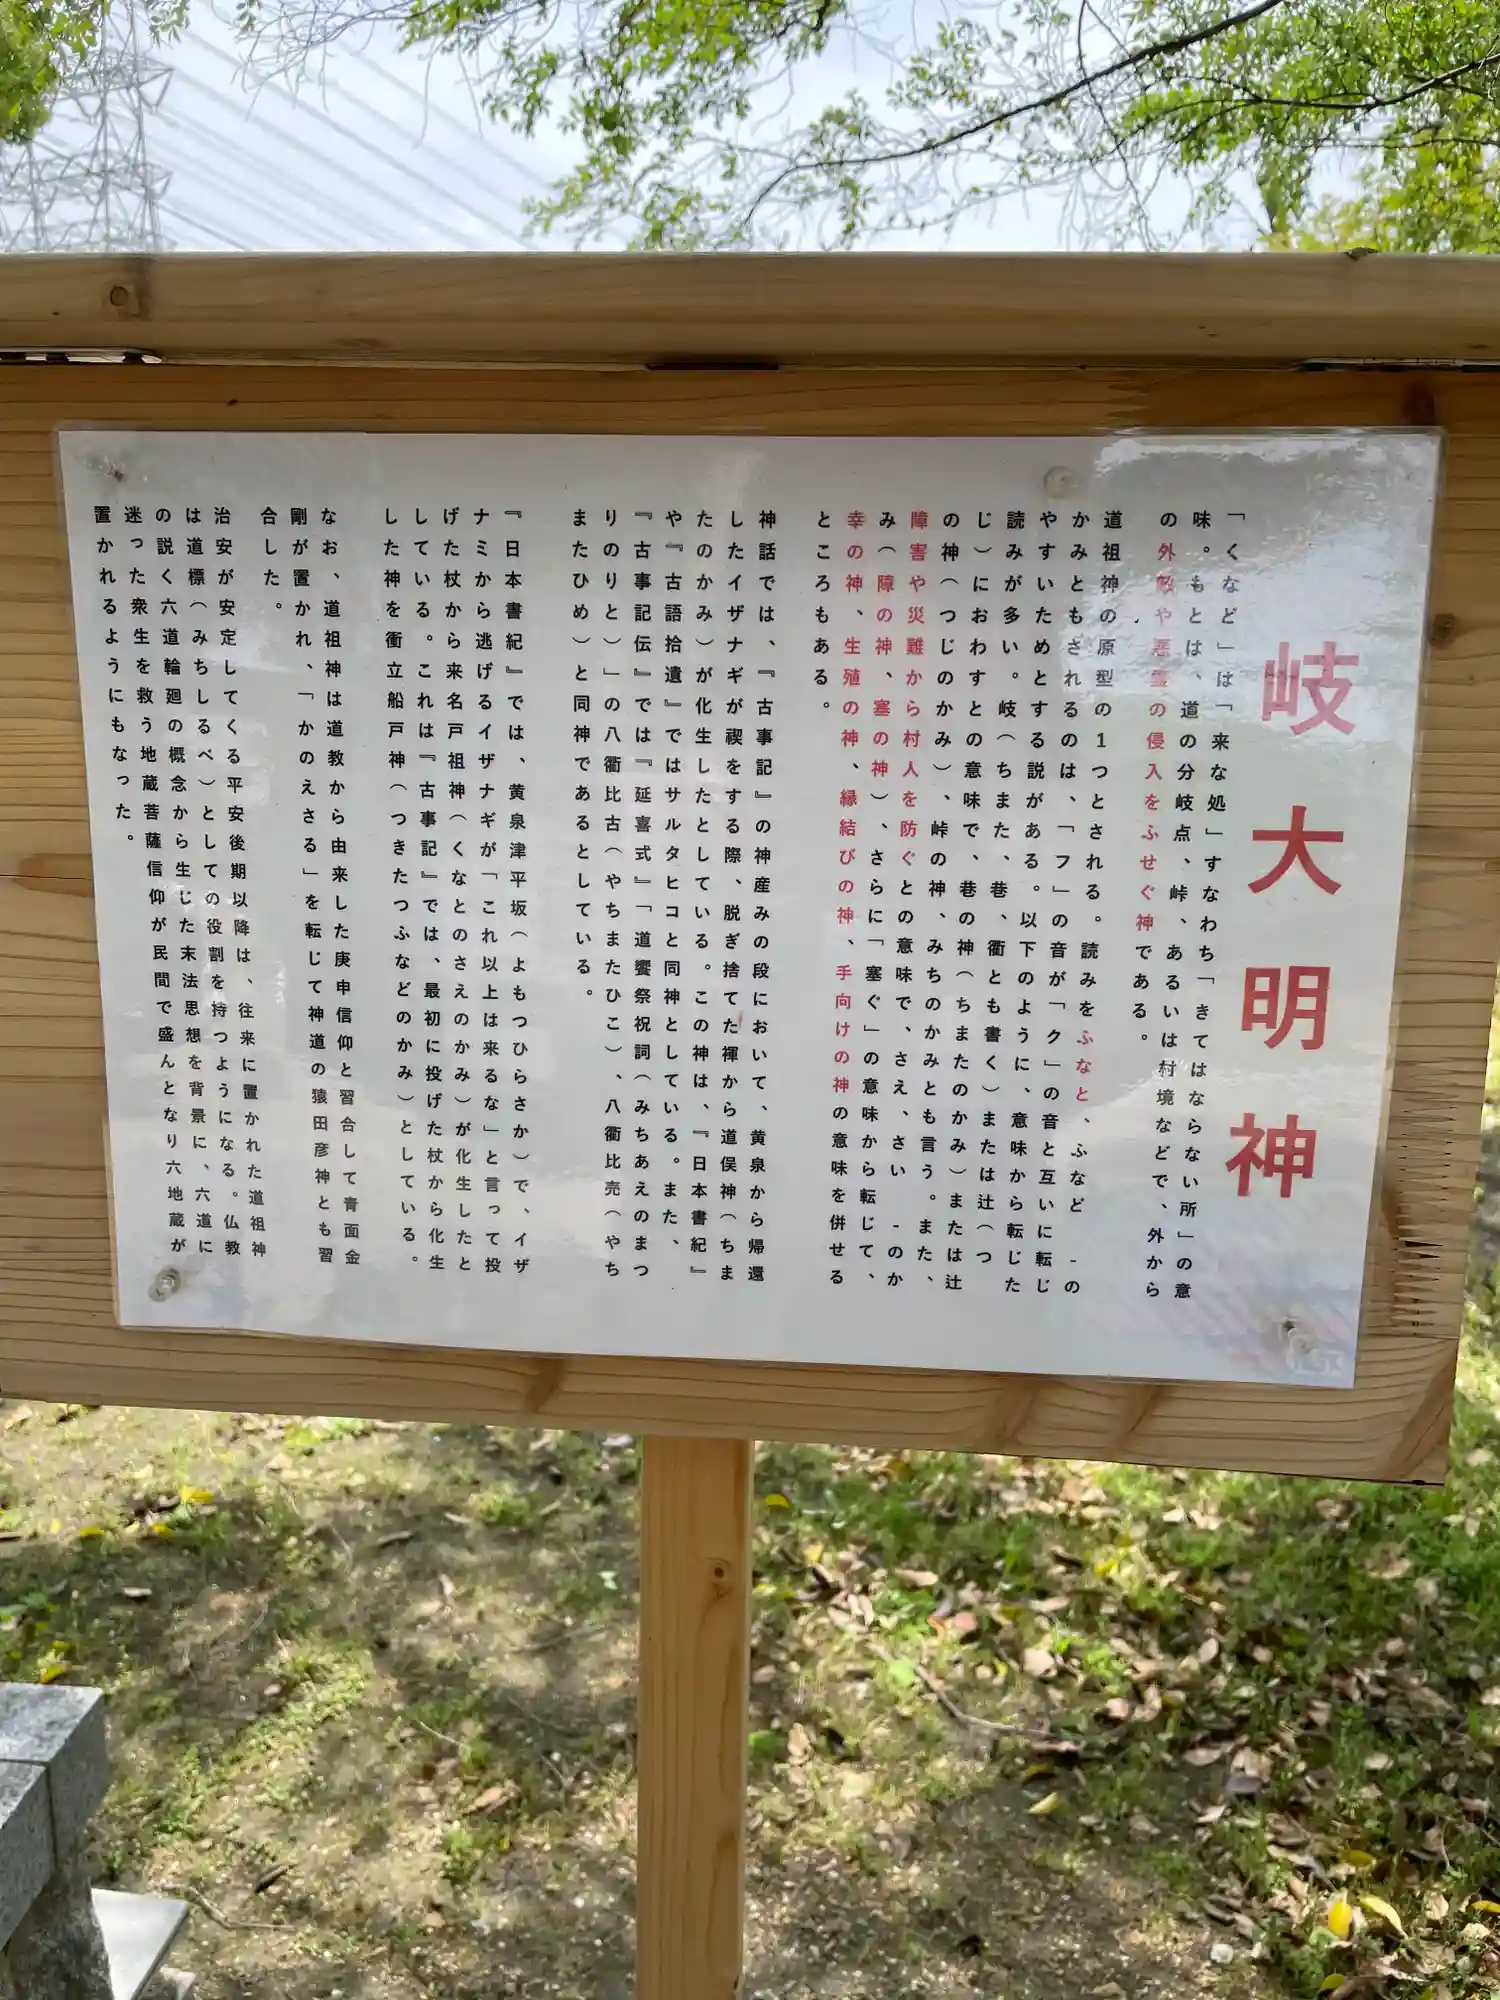 岐大明神
「くなど」は「来な処」すなわち「きてはならない所」の意
味。もとは、道の分岐点、峠、あるいは村境などで、外から
の外敵や悪霊の侵入をふせぐ神である。
道祖神の原型の1つとされる。読みをふなと、ふなど -の
かみともされるのは、「フ」の音が「ク」の音と互いに転じ
やすいためとする説がある。以下のように、意味から転じた
読みが多い。岐(ちまた、巷、衢とも書く)または辻(つ
じ)におわすとの意味で、巷の神(ちまたのかみ)または辻
の神(つじのかみ)、峠の神、みちのかみとも言う。また、
障害や災難から村人を防ぐとの意味で、さえ、さい -のか
み(障の神、塞の神)、さらに「塞ぐ」の意味から転じて、
幸の神、生殖の神、縁結びの神、手向けの神の意味を併せる
ところもある。
神話では、『古事記』の神産みの段において、黄泉から帰還
したイザナギが禊をする際、脱ぎ捨てた褌から道俣神(ちま
たのかみ)が化生したとしている。この神は、『日本書紀』
や『古語拾遺』ではサルタヒコと同神としている。また、
『古事記伝』では『延喜式』「道饗祭祝詞(みちあえのまつ
りのりと)」の八衢比古(やちまたひこ)、八衢比売(やち
またひめ)と同神であるとしている。
『日本書紀』では、黄泉津平坂(よもつひらさか)で、イザ
ナミから逃げるイザナギが「これ以上は来るな」と言って投
げた杖から来名戸祖神(くなとのさえのかみ)が化生したと
している。これは『古事記』では、最初に投げた杖から化生
した神を衝立船戸神(つきたつふなどのかみ)としている。
なお、道祖神は道教から由来した庚申信仰と習合して青面金
剛が置かれ、「かのえさる」を転じて神道の猿田彦神とも習
合した。
治安が安定してくる平安後期以降は、往来に置かれた道祖神
は道標(みちしるべ)としての役割を持つようになる。仏教
の説く六道輪廻の概念から生じた末法思想を背景に、六道に
迷った衆生を救う地蔵菩薩信仰が民間で盛んとなり六地蔵が
置かれるようにもなった。